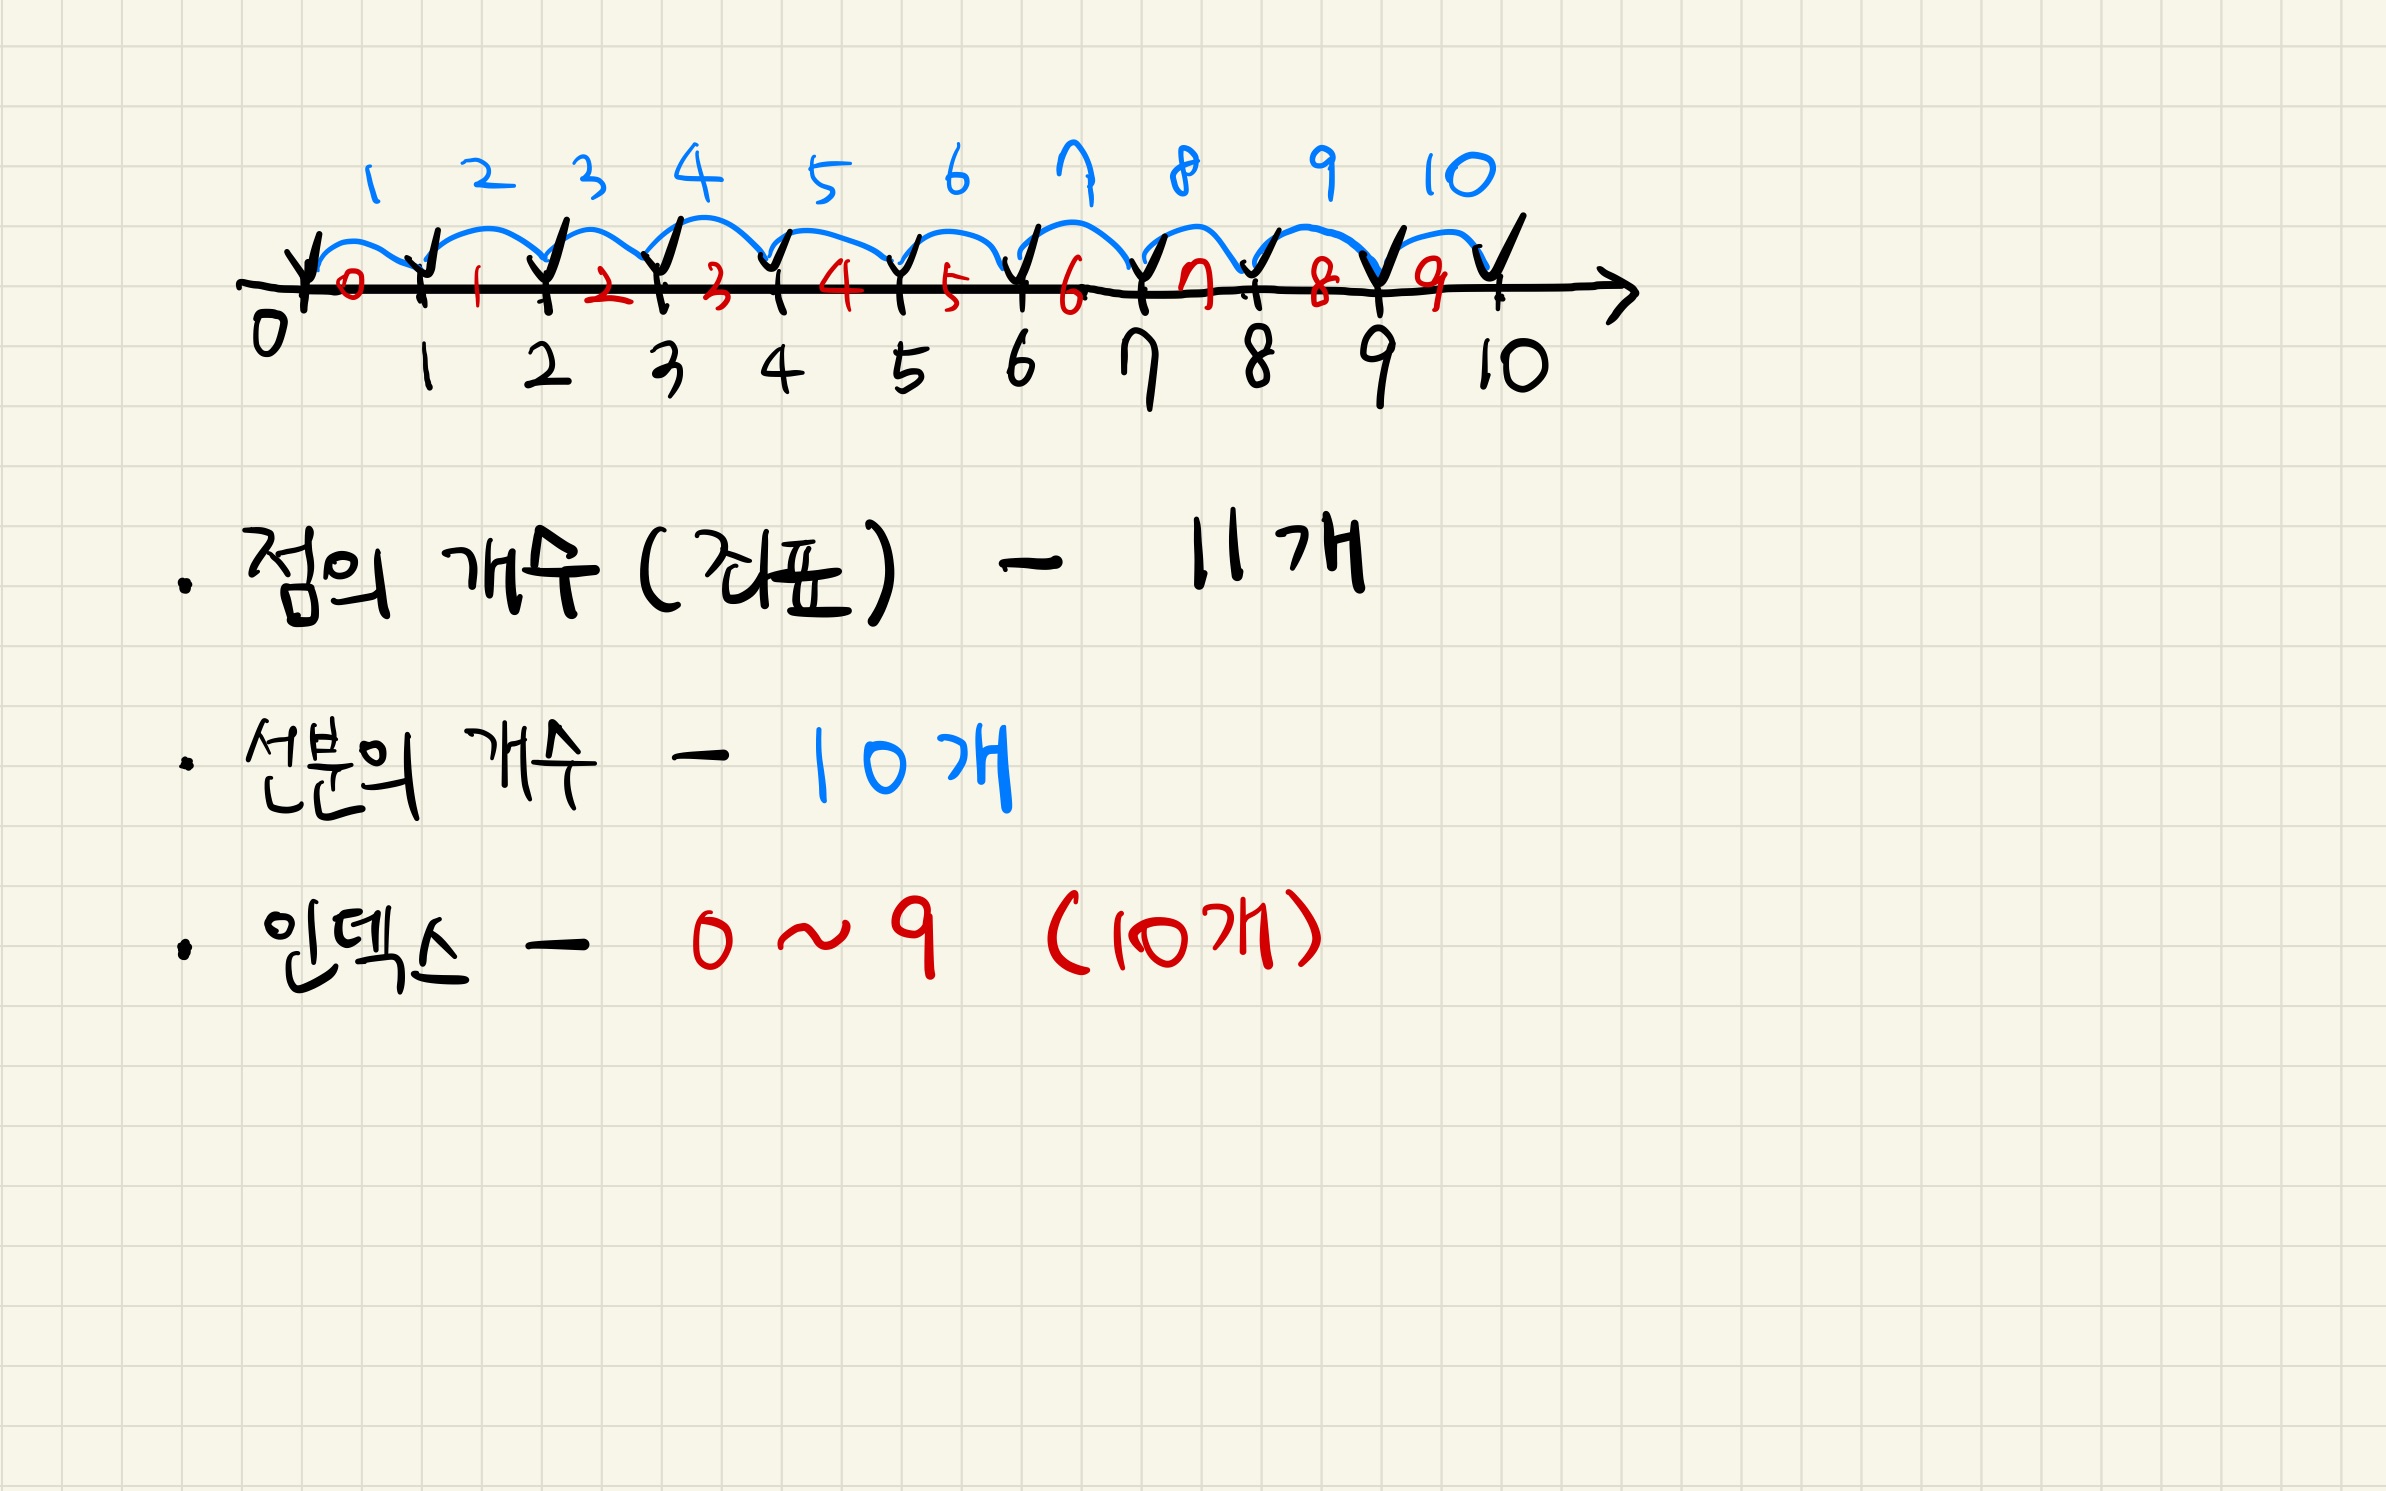 1 2 3 4 5 6 7 8 9 10
0 1 2 3 4 5 6 7 8 9
0 1 2 3 4 5 6 7 8 9 10
• 점의 개수 (좌표) - 11개
• 선분의 개수 - 10개
• 인덱스 - 0 ~ 9 (10개)